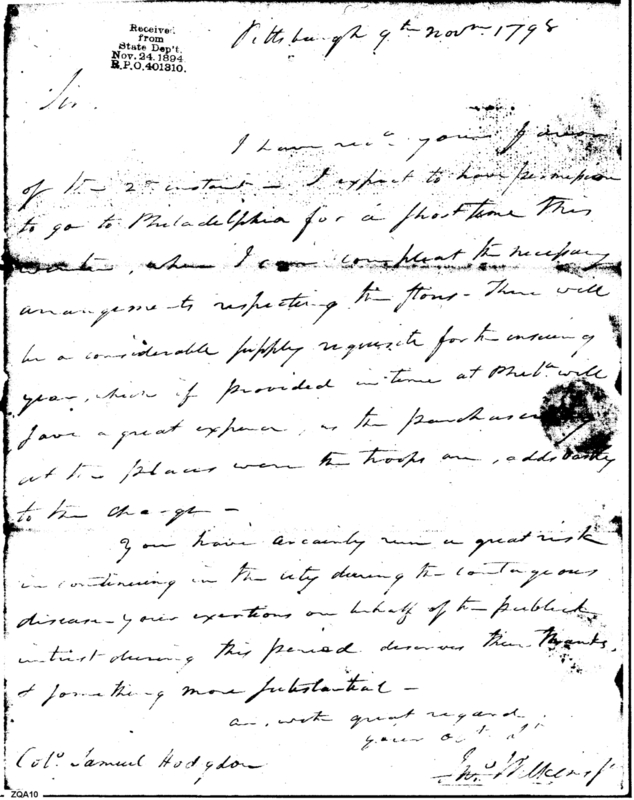 Received
from
State Dep't.
Nov. 24. 1894
R.P.O. 401310.
Pittsburgh 9th Novr. 1798
Sir.
I have recd. your favor
of the 2d instant - I expect to have permission
to go to Philadelphia for a short time this
winter, when I can compleat the necessary
arrangements respecting the stores - There will
be a considerable supply requisite for the ensueing
year, which if provided in time at Phila. will
save a great expence, as the purchaseing
at the places were the troops are, adds vastly
to the charge -
You have certainly run a great risk
in continueing in the city during the contageous
disease - your exertions on behalf of the publick
intrest during this period deserves their thanks,
& something more substantial -
am, with great regard,
your Obt. st.
Jno. Wilkins Jr.
Colo. Samuel Hodgdon
ZQA10